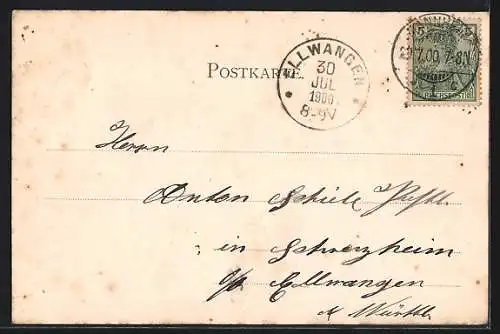 POSTKARTE.
ELLWANGEN
30
JUL
1900
8-9V
7.00. 7-8N
REICHSPOST
Herrn
Anton Schiele
in Schrezheim
Ellwangen
Württb.